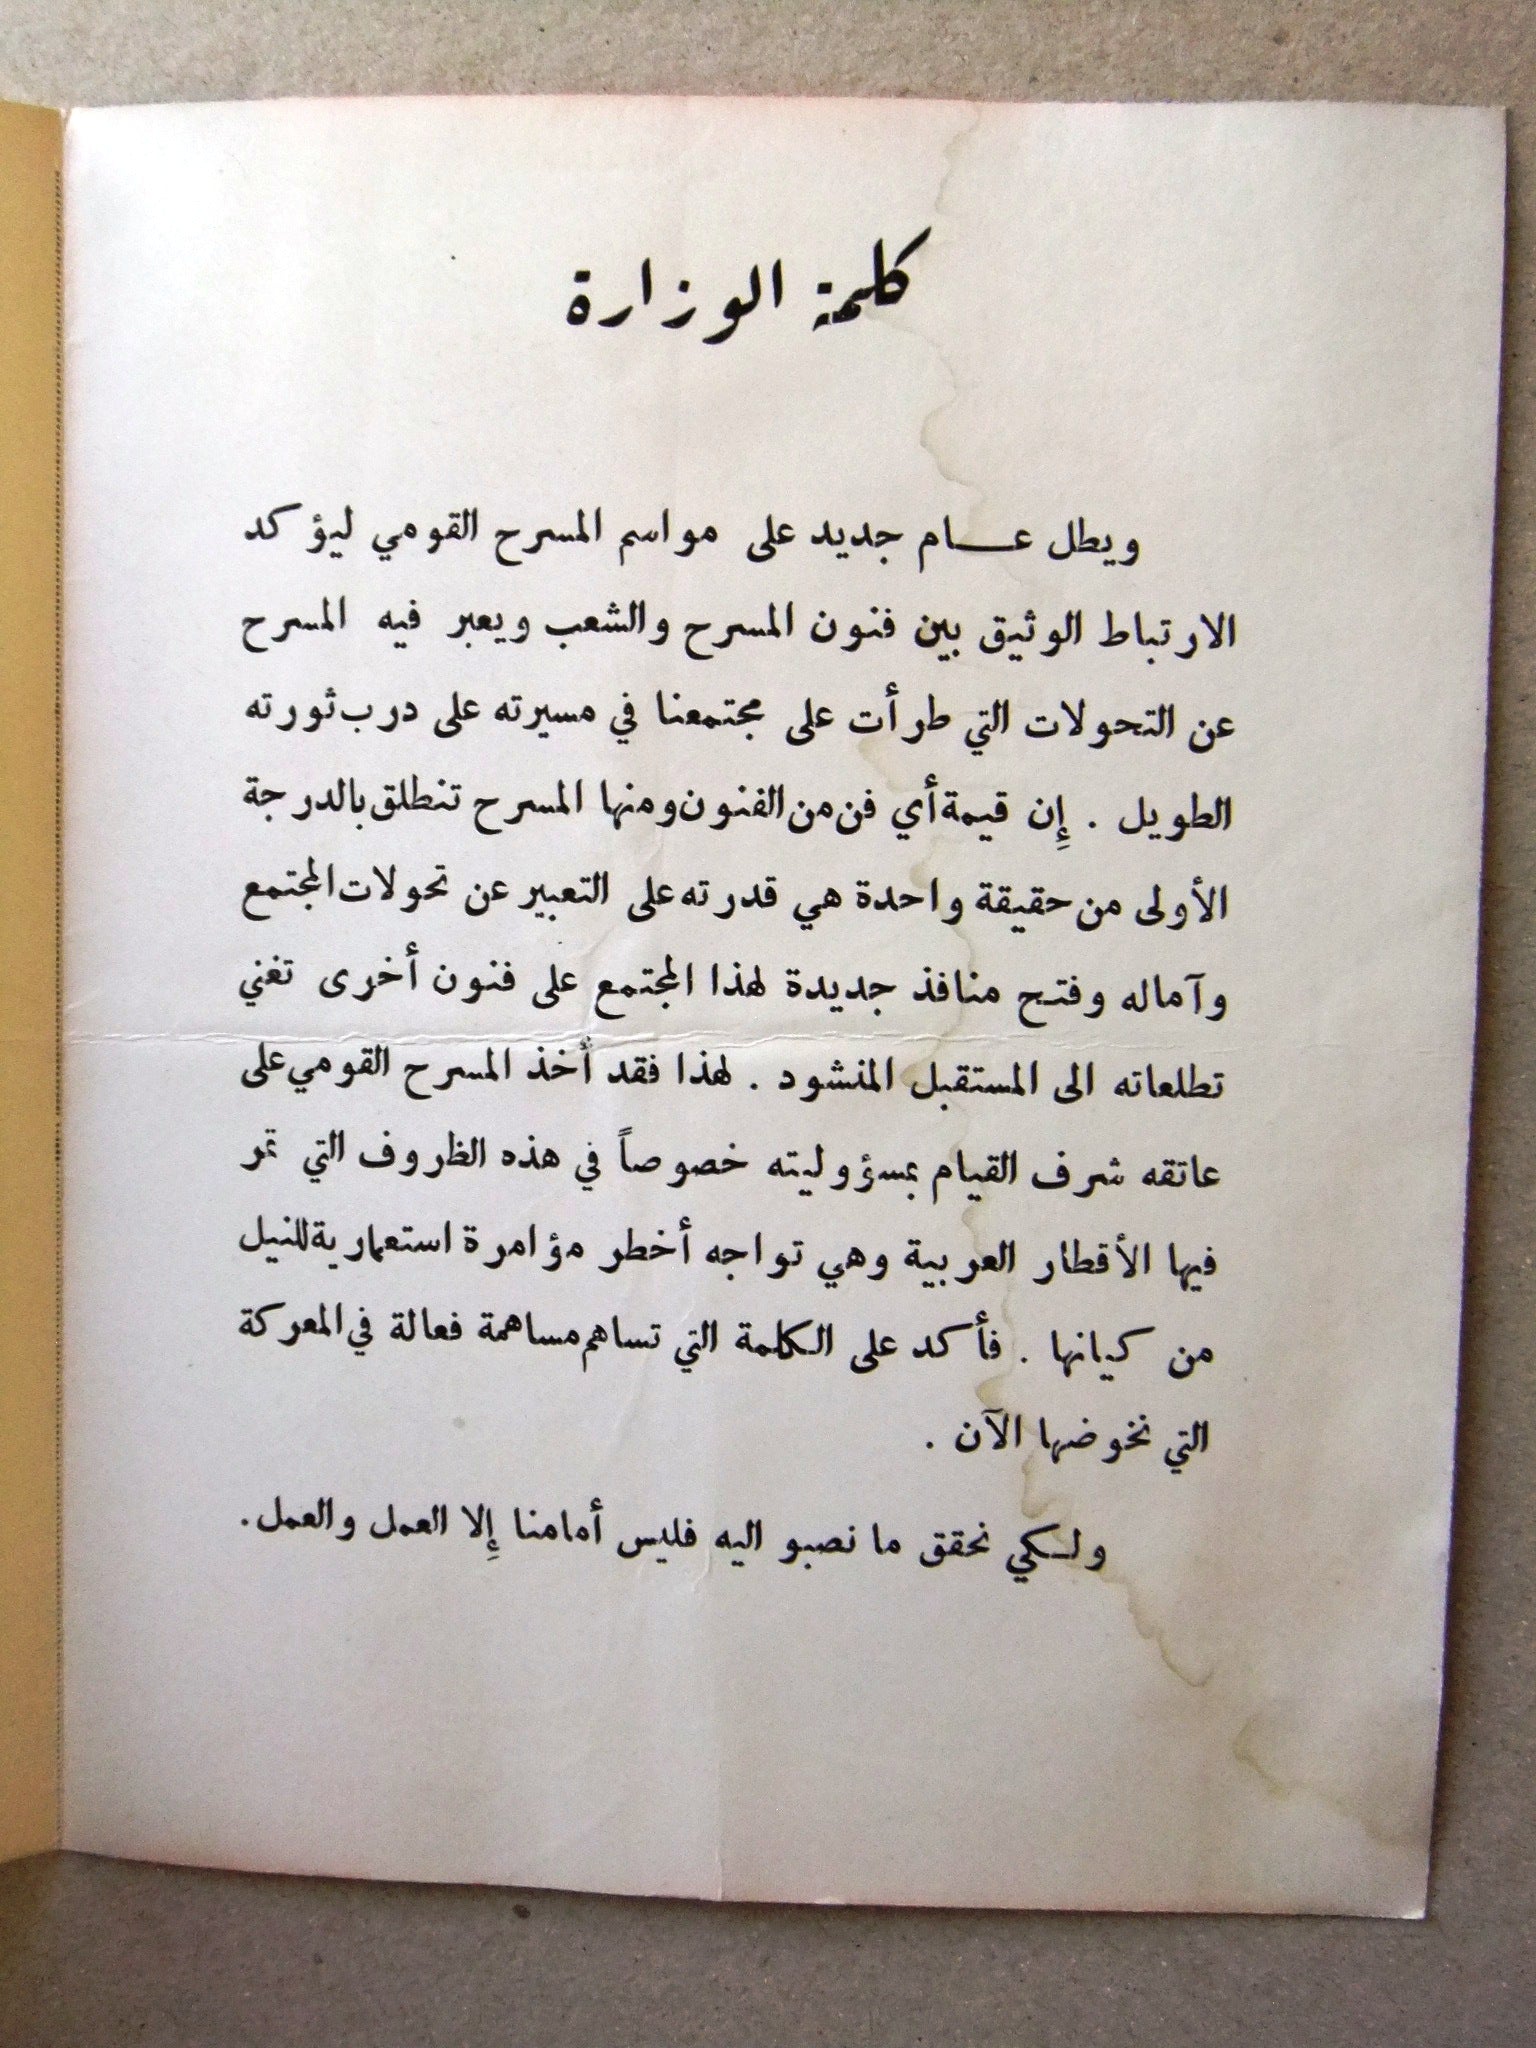 كلمة الوزارة
ويطل عـــام جديد على مواسم المسرح القومي ليؤكد
الارتباط الوثيق بين فنون المسرح والشعب ويعبر فيه المسرح
عن التحولات التي طرأت على مجتمعنا في مسيرته على درب ثورته
الطويل . إِن قيمة أي فن من الفنون ومنها المسرح تنطلق بالدرجة
الأولى من حقيقة واحدة هي قدرته على التعبير عن تحولات المجتمع
وآماله وفتح منافذ جديدة لهذا المجتمع على فنون أخرى تغني
تطلعاته الى المستقبل المنشود . لهذا فقد أخذ المسرح القومي على
عاتقه شرف القيام بمسؤوليته خصوصاً في هذه الظروف التي تمر
فيها الأقطار العربية وهي تواجه أخطر مؤامرة استعمارية للنيل
من كيانها . فأكد على الكلمة التي تساهم مساهمة فعالة في المعركة
التي نخوضها الآن .
ولكي نحقق ما نصبو اليه فليس أمامنا إِلا العمل والعمل .